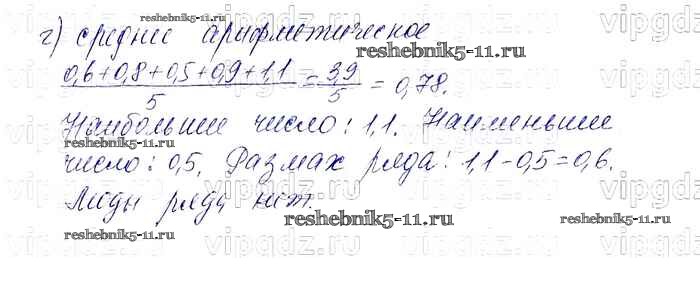 г) среднее арифметическое
reshebnik5-11.ru
reshebnik5-11.ru
(0,6+0,8+0,5+0,9+1,1)/5 = 3,9/5 = 0,78.
reshebnik5-11.ru
Наибольшее число: 1,1. Наименьшее
reshebnik5-11.ru
число: 0,5. Размах ряда: 1,1-0,5=0,6.
Моды ряда нет.
reshebnik5-11.ru
reshebnik5-11.ru
reshebnik5-11.ru
vipgdz.ru